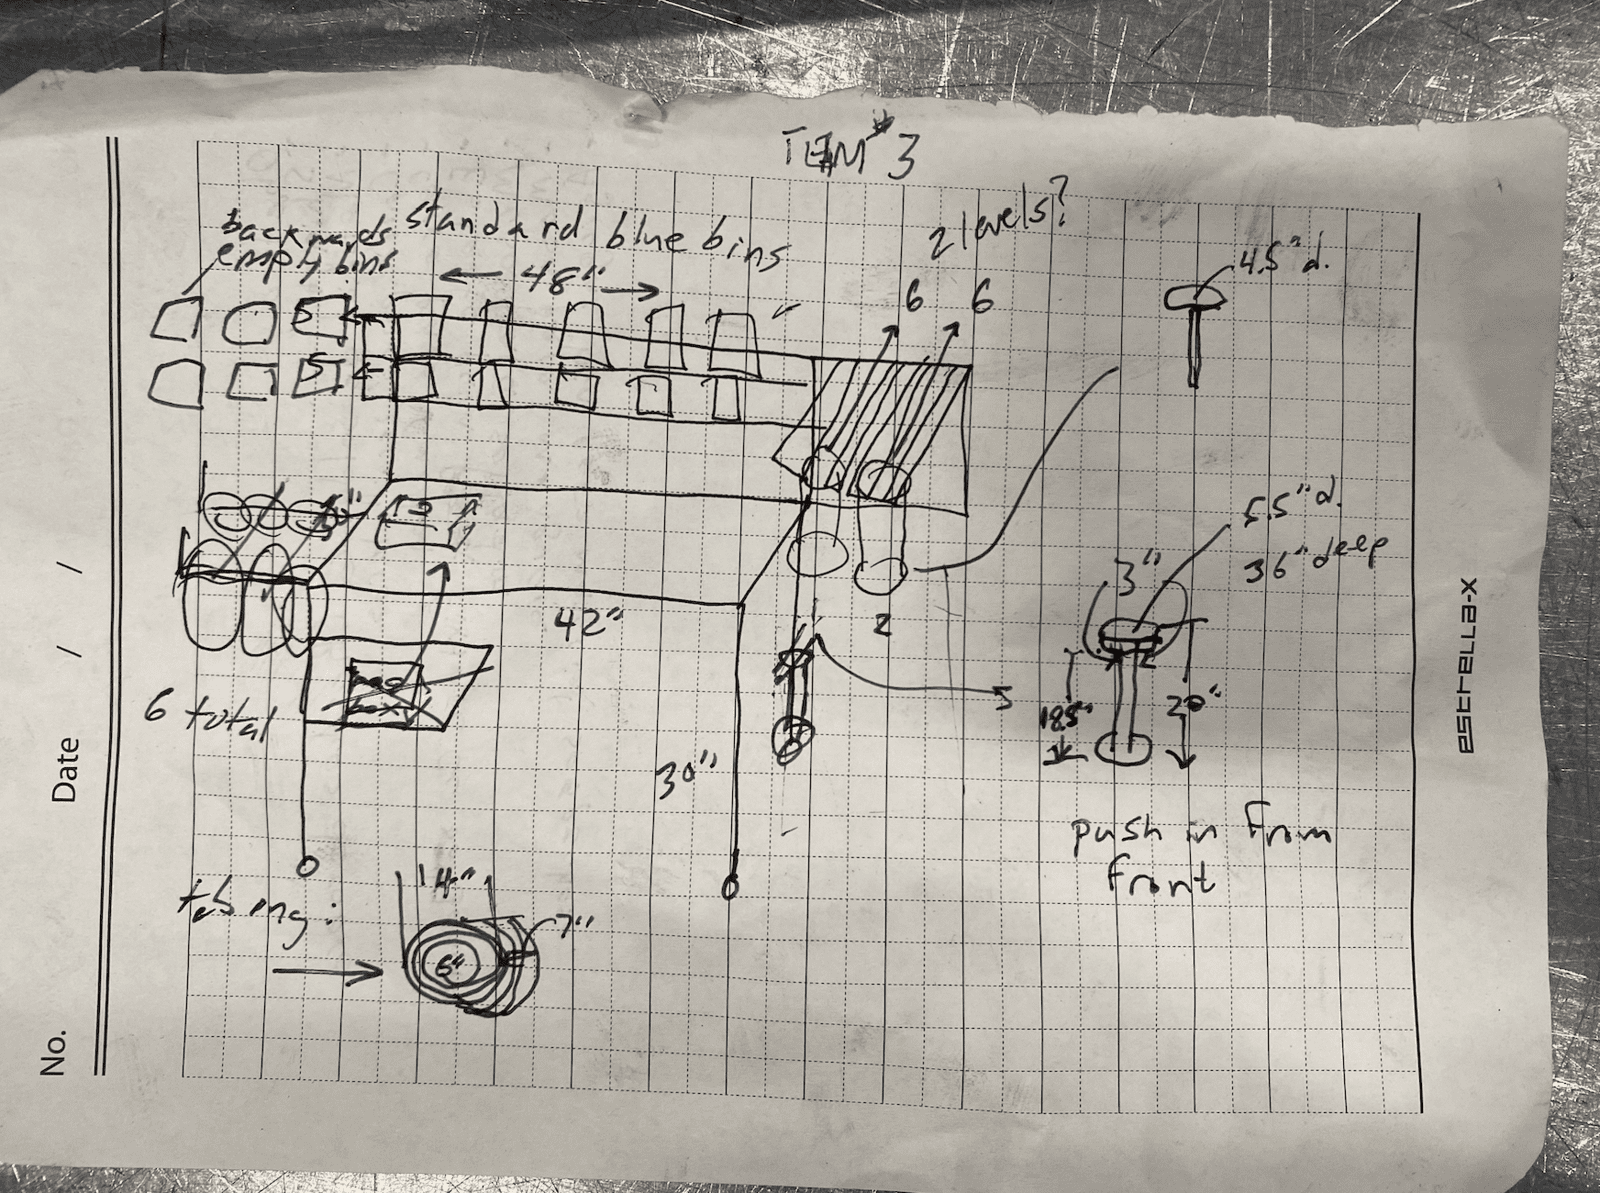 TEM #3
standard blue bins
backwards
empty bins
48"
2 levels?
6 6
4.5" d.
5.5" d.
36" deep
3"
42"
2
5
6 total
18.5"
20"
30"
push in from
front
tubing:
14"
7"
6"
No.
Date / /
estrella-x